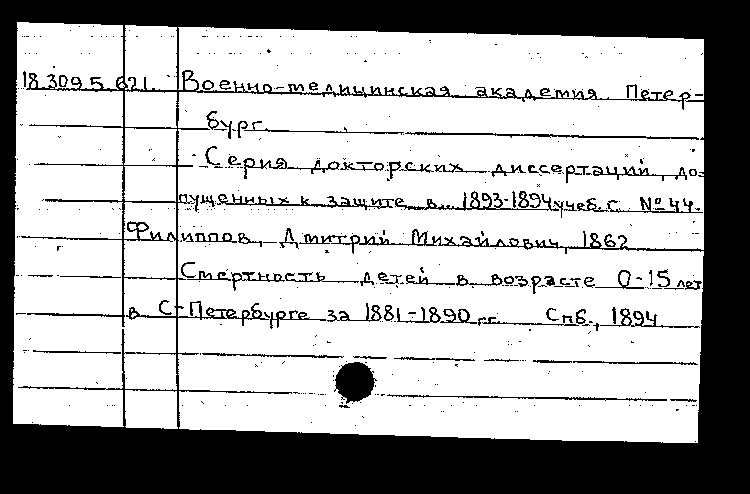 18.309.5.621. Военно-медицинская академия. Петер-
бург.
Серия докторских диссертаций, до-
пущенных к защите в 1893-1894 учеб. г. № 44.
Филиппов, Дмитрий Михайлович, 1862
Смертность детей в возрасте 0-15 лет
в С-Петербурге за 1881-1890 гг. Спб., 1894